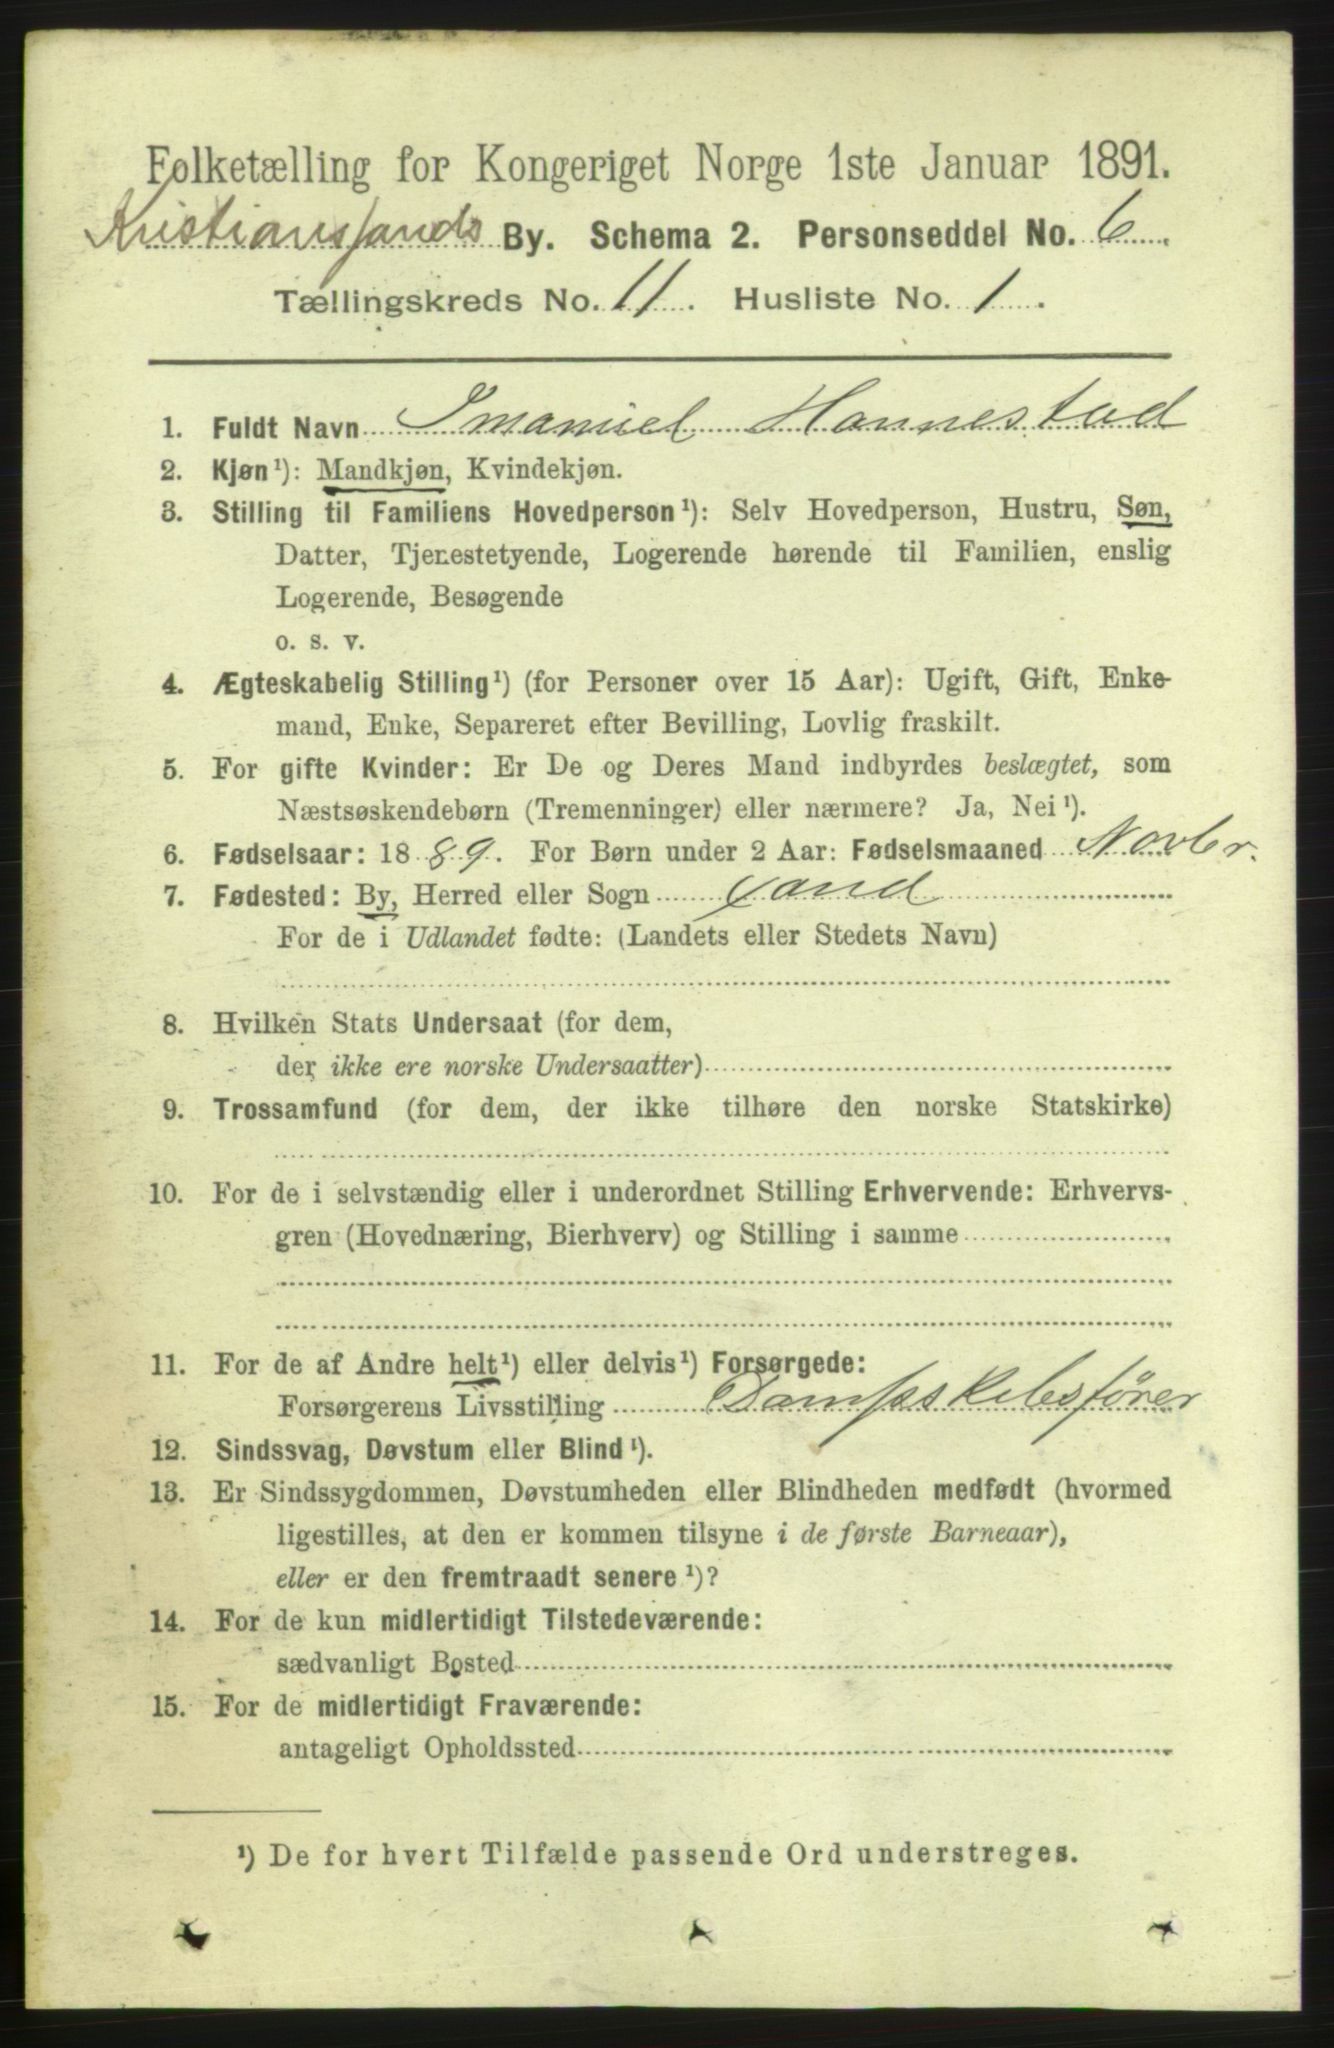 Folketælling for Kongeriget Norge 1ste Januar 1891.
Kristianssands By. Schema 2. Personseddel No. 6
Tællingskreds No. 11. Husliste No. 1.
1. Fuldt Navn Imanuel Hannestad
2. Kjøn ¹): Mandkjøn, Kvindekjøn.
3. Stilling til Familiens Hovedperson ¹): Selv Hovedperson, Hustru, Søn,
Datter, Tjenestetyende, Logerende hørende til Familien, enslig
Logerende, Besøgende
o. s. v.
4. Ægteskabelig Stilling ¹) (for Personer over 15 Aar): Ugift, Gift, Enke-
mand, Enke, Separeret efter Bevilling, Lovlig fraskilt.
5. For gifte Kvinder: Er De og Deres Mand indbyrdes beslægtet, som
Næstsøskendebørn (Tremenninger) eller nærmere? Ja, Nei ¹).
6. Fødselsaar: 1889. For Børn under 2 Aar: Fødselsmaaned Novbr.
7. Fødested: By, Herred eller Sogn Xsand
For de i Udlandet fødte: (Landets eller Stedets Navn)
8. Hvilken Stats Undersaat (for dem,
der ikke ere norske Undersaatter)
9. Trossamfund (for dem, der ikke tilhøre den norske Statskirke)
10. For de i selvstændig eller i underordnet Stilling Erhvervende: Erhvervs-
gren (Hovednæring, Bierhverv) og Stilling i samme
11. For de af Andre helt ¹) eller delvis ¹) Forsørgede:
Forsørgerens Livsstilling Dampskibsfører
12. Sindssvag, Døvstum eller Blind ¹).
13. Er Sindssygdommen, Døvstumheden eller Blindheden medfødt (hvormed
ligestilles, at den er kommen tilsyne i de første Barneaar),
eller er den fremtraadt senere ¹)?
14. For de kun midlertidigt Tilstedeværende:
sædvanligt Bosted
15. For de midlertidigt Fraværende:
antageligt Opholdssted
¹) De for hvert Tilfælde passende Ord understreges.